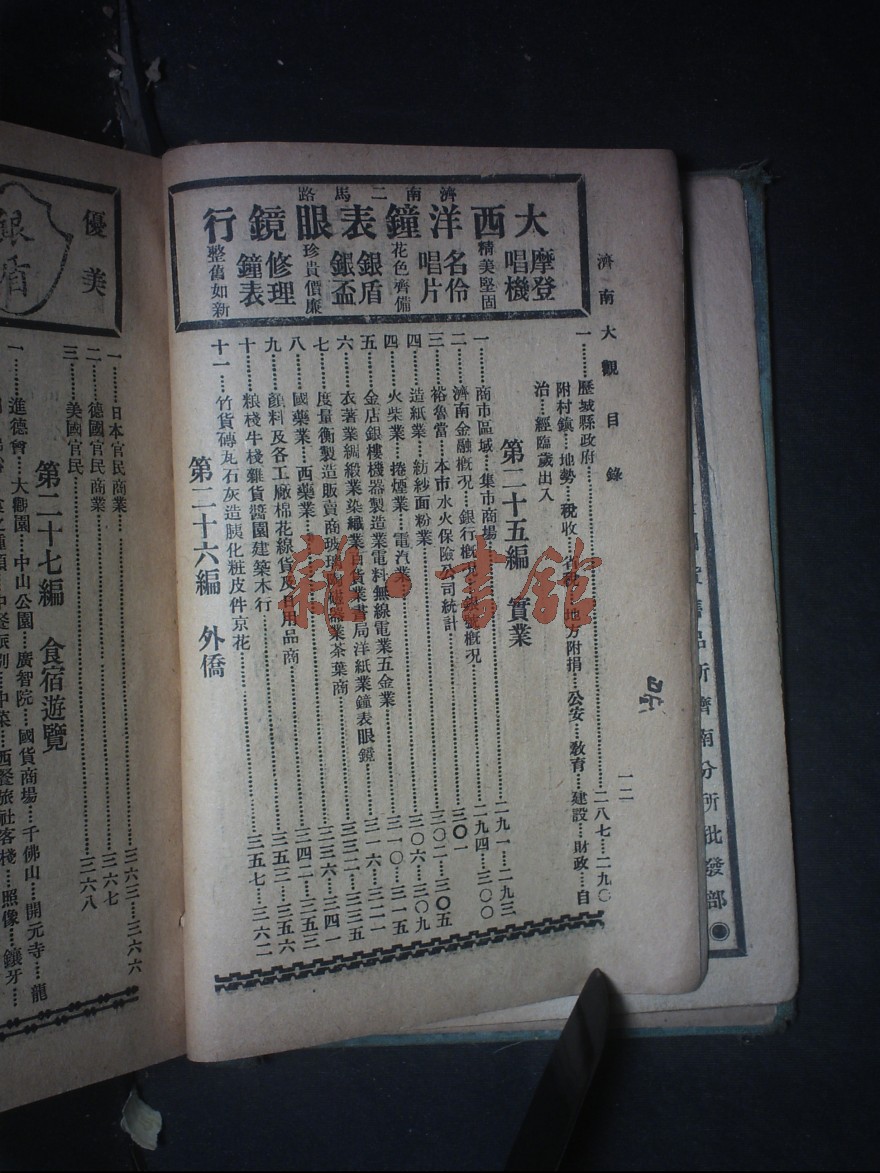 濟南大觀 目錄
一二
濟南二馬路
大西洋鐘表眼鏡行
摩登唱機
精美堅固
名伶唱片
花色齊備
銀盾銀盃
珍貴價廉
修理鐘表
整舊如新
一……歷城縣政府……二八七—二九〇
附村鎮…地勢…稅收…省稅…地方附捐…公安…教育…建設…財政…自
治…經臨歲出入
第二十五編 實業
一……商市區域…集市商場……二九一—二九三
二……濟南金融概况…銀行概况…銀號概况……二九四—三〇〇
三……裕魯當…本市水火保險公司統計……三〇一
四……造紙業…紡紗面粉業……三〇二—三〇五
四……火柴業…捲煙業…電汽業……三〇六—三〇九
五……金店銀樓機器製造業電料無線電業五金業……三一〇—三一五
六……衣著業綢緞業染織業百貨業書局洋紙業鐘表眼鏡……三一六—三二一
七……度量衡製造販賣商玻璃磁器業茶葉商……三三二—三三五
八……國藥業…西藥業……三三六—三四一
九……顏料及各工廠棉花線貨及日用品商……三四二—三五三
十……粮棧牛棧雜貨醬園建築木行……三五三—三五六
十一……竹貨磚瓦石灰造胰化粧皮件京花……三五七—三六二
第二十六編 外僑
優美
銀盾
一……日本官民商業……三六三—三六六
二……德國官民商業……三六七
三……美國官民……三六八
第二十七編 食宿遊覽
一……進德會…大觀園…中山公園…廣智院…國貨商場…千佛山…開元寺…龍
中菜…西餐旅社客棧…照像…鑲牙…
濟南分所批發部
雜·書館